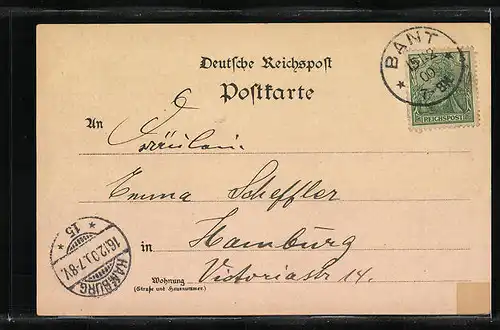 Deutsche Reichspost
Postkarte
BANT
15.12
00
7-8N
REICHSPOST
An
Fräulein
Emma Scheffler
in Hamburg
Wohnung Victoriastr 14.
(Straße und Hausnummer)
HAMBURG
16.12.00.7-8V.
* 15 *